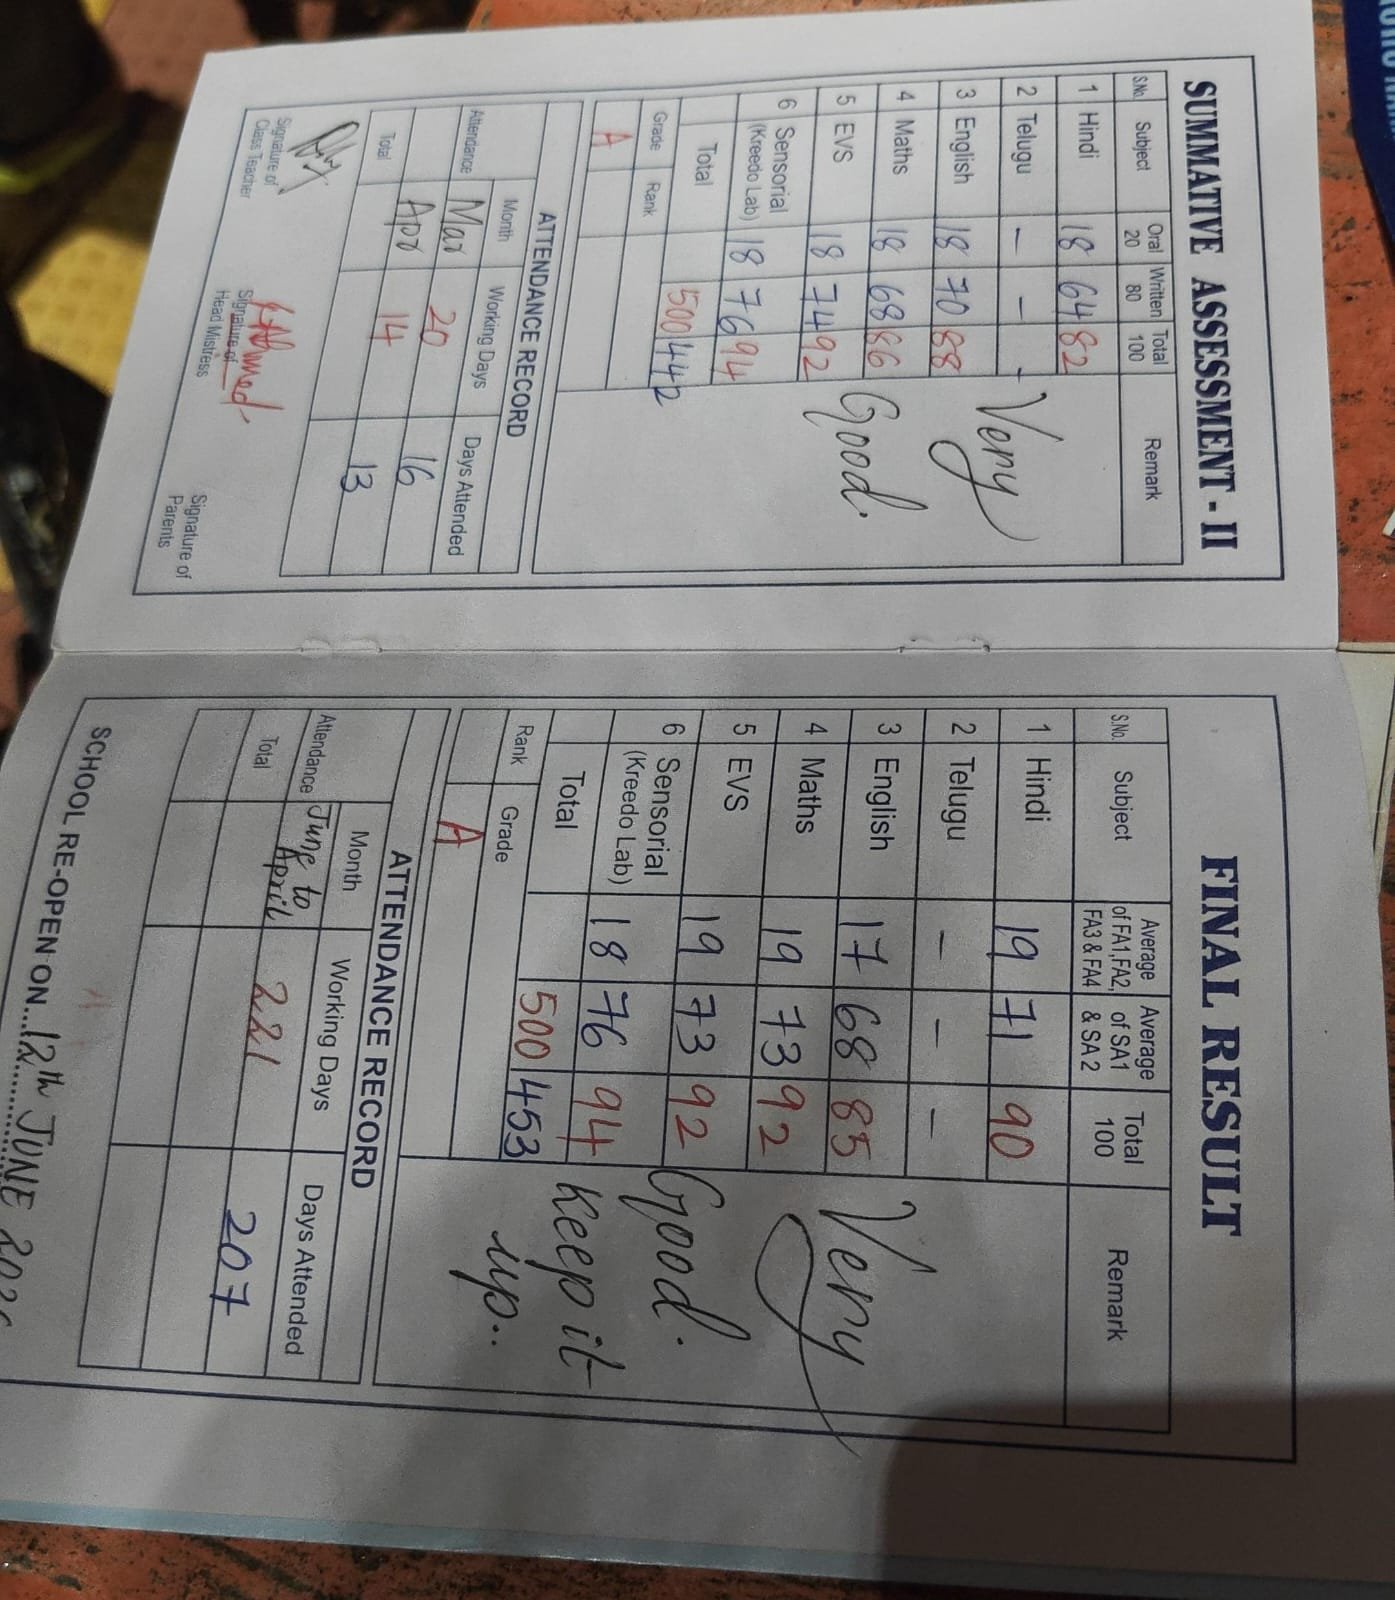 SUMMATIVE ASSESSMENT - II
S.No. Subject Oral 20 Written 80 Total 100 Remark
1 Hindi 18 64 82
2 Telugu - - -
3 English 18 70 88
4 Maths 18 68 86
5 EVS 18 74 92
6 Sensorial (Kreedo Lab) 18 76 94
Total 500 442
Very
Good.
Grade Rank
A
ATTENDANCE RECORD
Attendance Month Working Days Days Attended
Mar 20 16
Apr 14 13
Total
Signature of Class Teacher
Signature of Head Mistress
Signature of Parents
FINAL RESULT
S.No. Subject Average of FA1,FA2, FA3 & FA4 Average of SA1 & SA 2 Total 100 Remark
1 Hindi 19 71 90
2 Telugu - - -
3 English 17 68 85
4 Maths 19 73 92
5 EVS 19 73 92
6 Sensorial (Kreedo Lab) 18 76 94
Total 500 453
Very
Good.
Keep it
up..
Rank Grade
A
ATTENDANCE RECORD
Attendance Month Working Days Days Attended
June to April 221 207
Total
SCHOOL RE-OPEN ON...12th JUNE